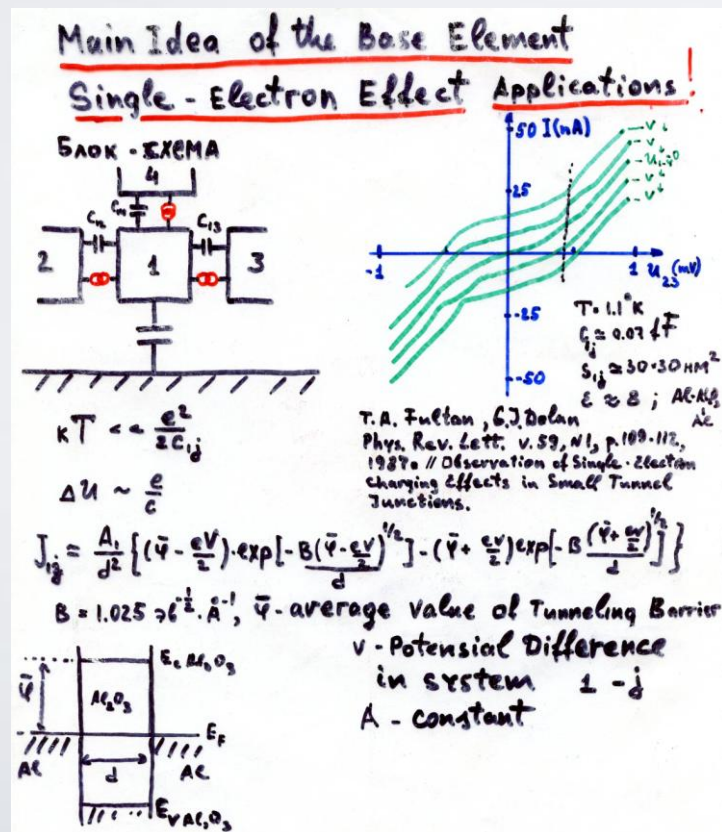 Main Idea of the Base Element
Single-Electron Effect Applications!
БЛОК-СХЕМА
4
C₁₃
2
1
3
50 I(nA)
25
-1
1 U₂₃(mV)
-25
-50
V
V
V
V
T=1.1°K
≃ 0.07 fF
S₁ⱼ ≃ 30·30 нм²
ε ≈ 8 ;
Al
кT << e²/2C₁ⱼ
ΔU ~ e/c
T.A. Fultan, G.J. Dolan
Phys. Rev. Lett. v.59, N1, p.109-112,
1987. // Observation of Single-Electron
charging Effects in Small Tunnel
Junctions.
J₁ⱼ = A₁/d² {(φ̄ - eV/2)·exp[-B(φ̄ - eV/2)^1/2 / d] - (φ̄ + eV/2)exp[-B(φ̄ + eV/2)^1/2 / d]}
B = 1.025 эВ^-1/2·Å⁻¹, φ̄ - average value of Tunneling Barrier
V - Potensial Difference
in system 1 - j
A - constant
φ̄
E_c Al₂O₃
Al₂O₃
E_F
Al
d
Al
E_V Al₂O₃